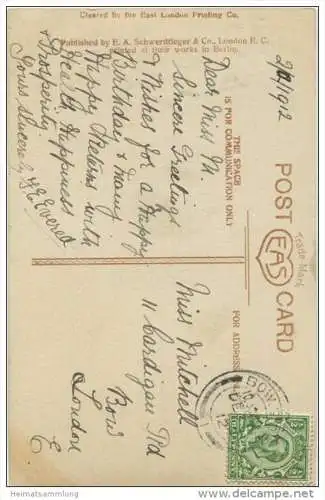 Cleared by the East London Printing Co.
Published by E. A. Schwerdtfeger & Co., London E. C.
printed at their works in Berlin.
POST CARD
Trade Mark
EAS
THE SPACE
IS FOR COMMUNICATION ONLY
FOR ADDRESS
Dear Miss M.
Sincere Greetings
& Wishes for a Happy
Birthday & many
Happy Returns with
Health Happiness
& Prosperity
Yours Sincerely
Everett
Miss Mitchell
11 Cardigan Rd
Bow
London
E
BOW
heimatsammler.de